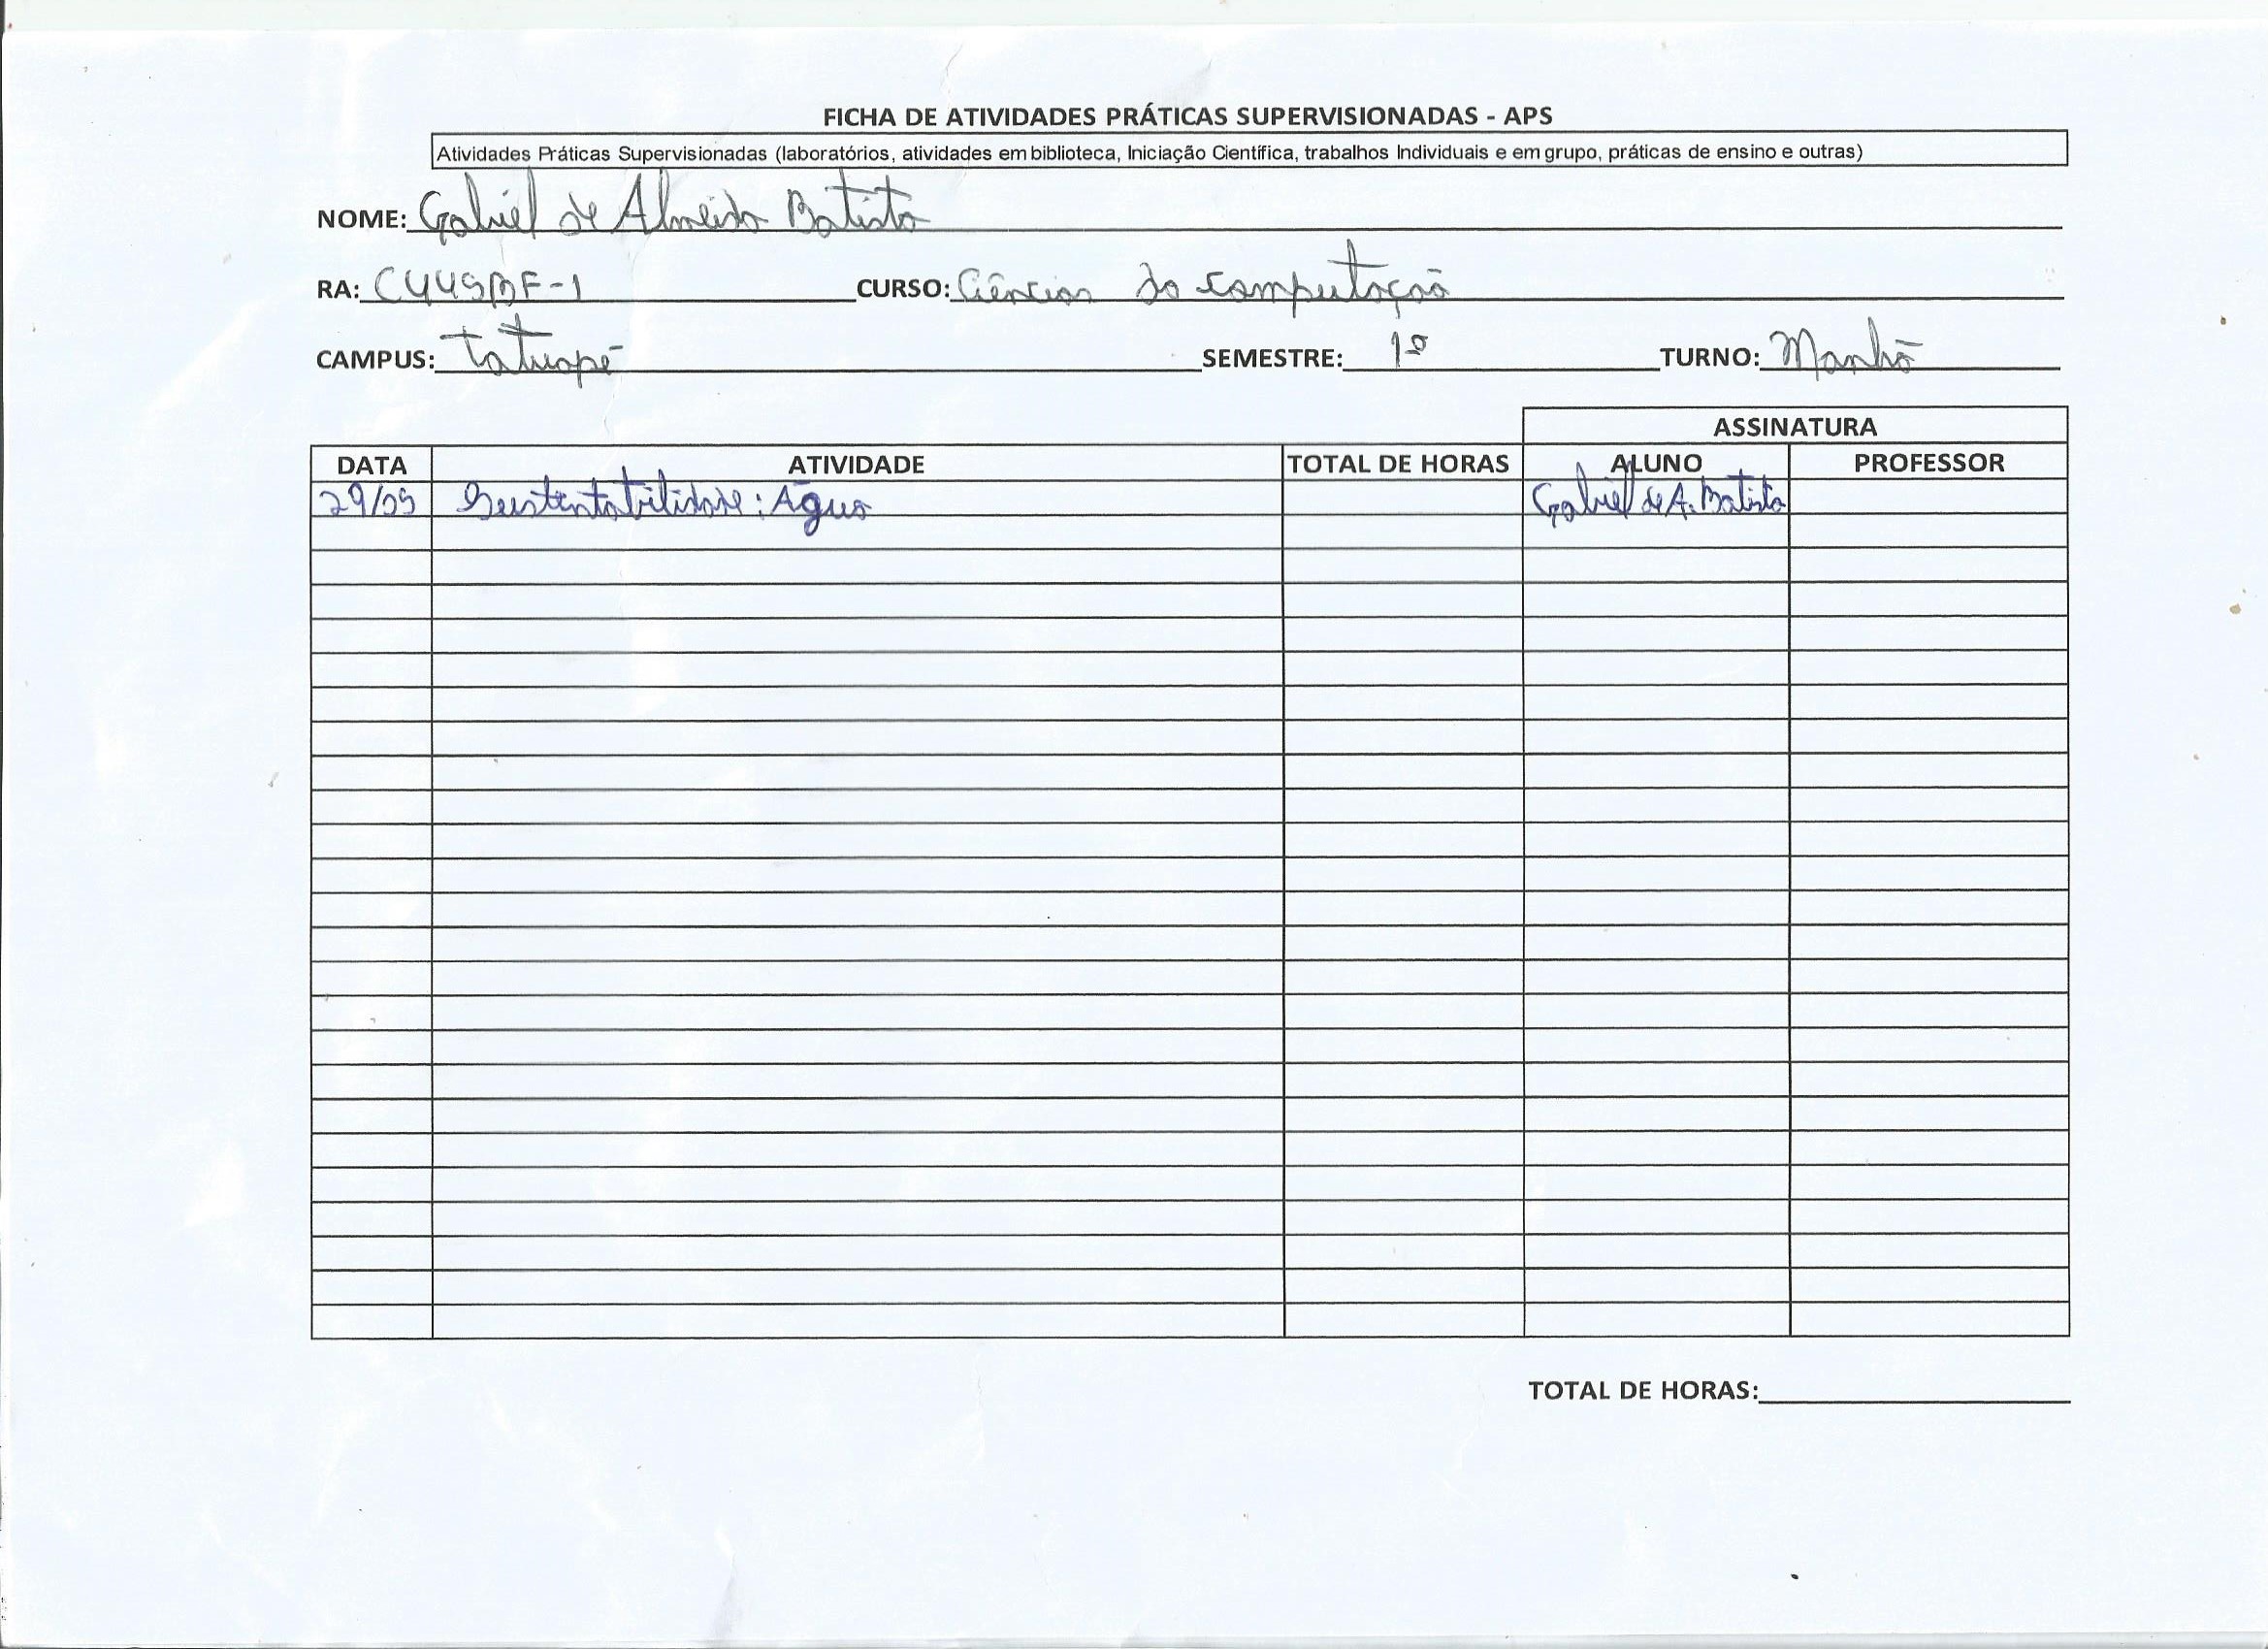 FICHA DE ATIVIDADES PRÁTICAS SUPERVISIONADAS - APS
Atividades Práticas Supervisionadas (laboratórios, atividades em biblioteca, Iniciação Científica, trabalhos Individuais e em grupo, práticas de ensino e outras)
NOME: Gabriel de Almeida Batista
RA: CURSO: Ciências da computação
CAMPUS: Tatuapé SEMESTRE: 1º TURNO: Manhã
ASSINATURA
DATA ATIVIDADE TOTAL DE HORAS ALUNO PROFESSOR
Sustentabilidade: Água Gabriel de A. Batista
TOTAL DE HORAS: